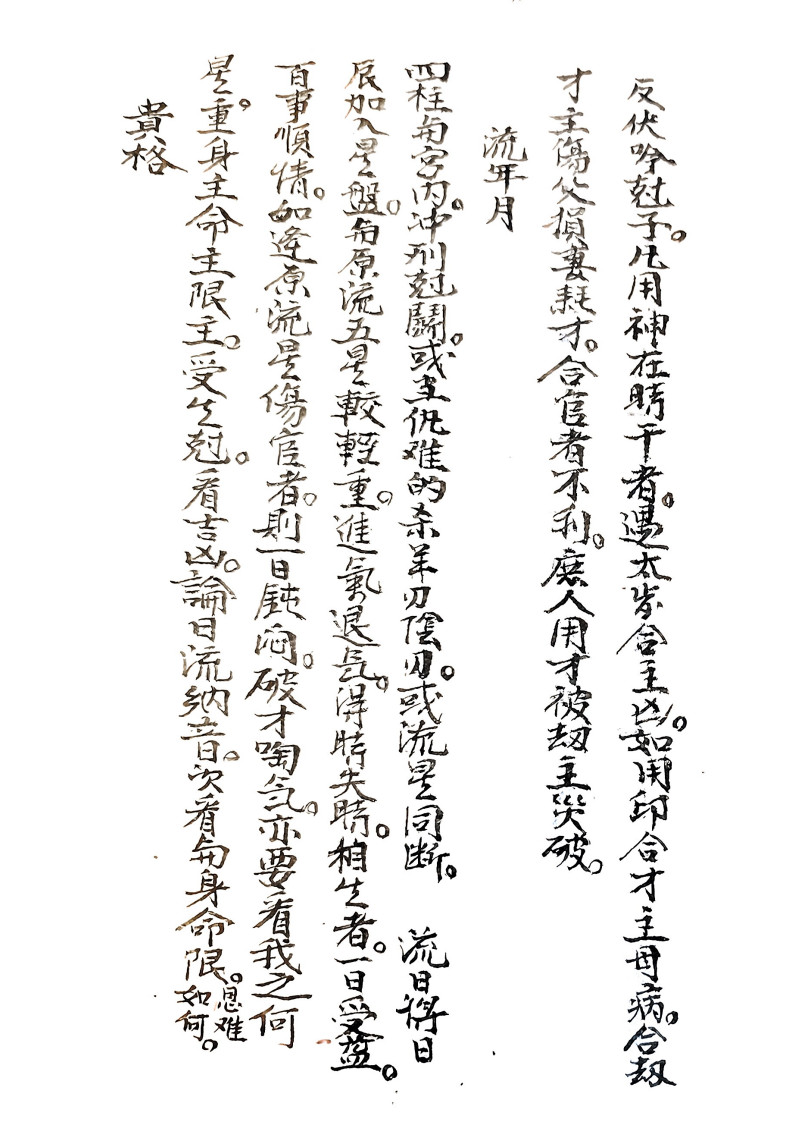 反伏吟尅子。凡用神在時干者。遇太岁合主凶。如用印合才主母病。合刼
才主傷父損妻耗才。合官者不利。庶人用才被刼主災破。
流年月
四柱与宮内。冲刑尅鬪。或主仇难的杀羊刃陰刃。或流星同断。 流日將日
辰加入星盤。与原流五星較輕重。進氣退気。得時失時。相生者。一日受益。
百事順情。如逢原流星傷官者。則一日鈍闷。破才啕気。亦要看我之何
星。重身主命主限主。受生尅。看吉凶。論日流納音。次看与身命限。恩难如何。
貴格